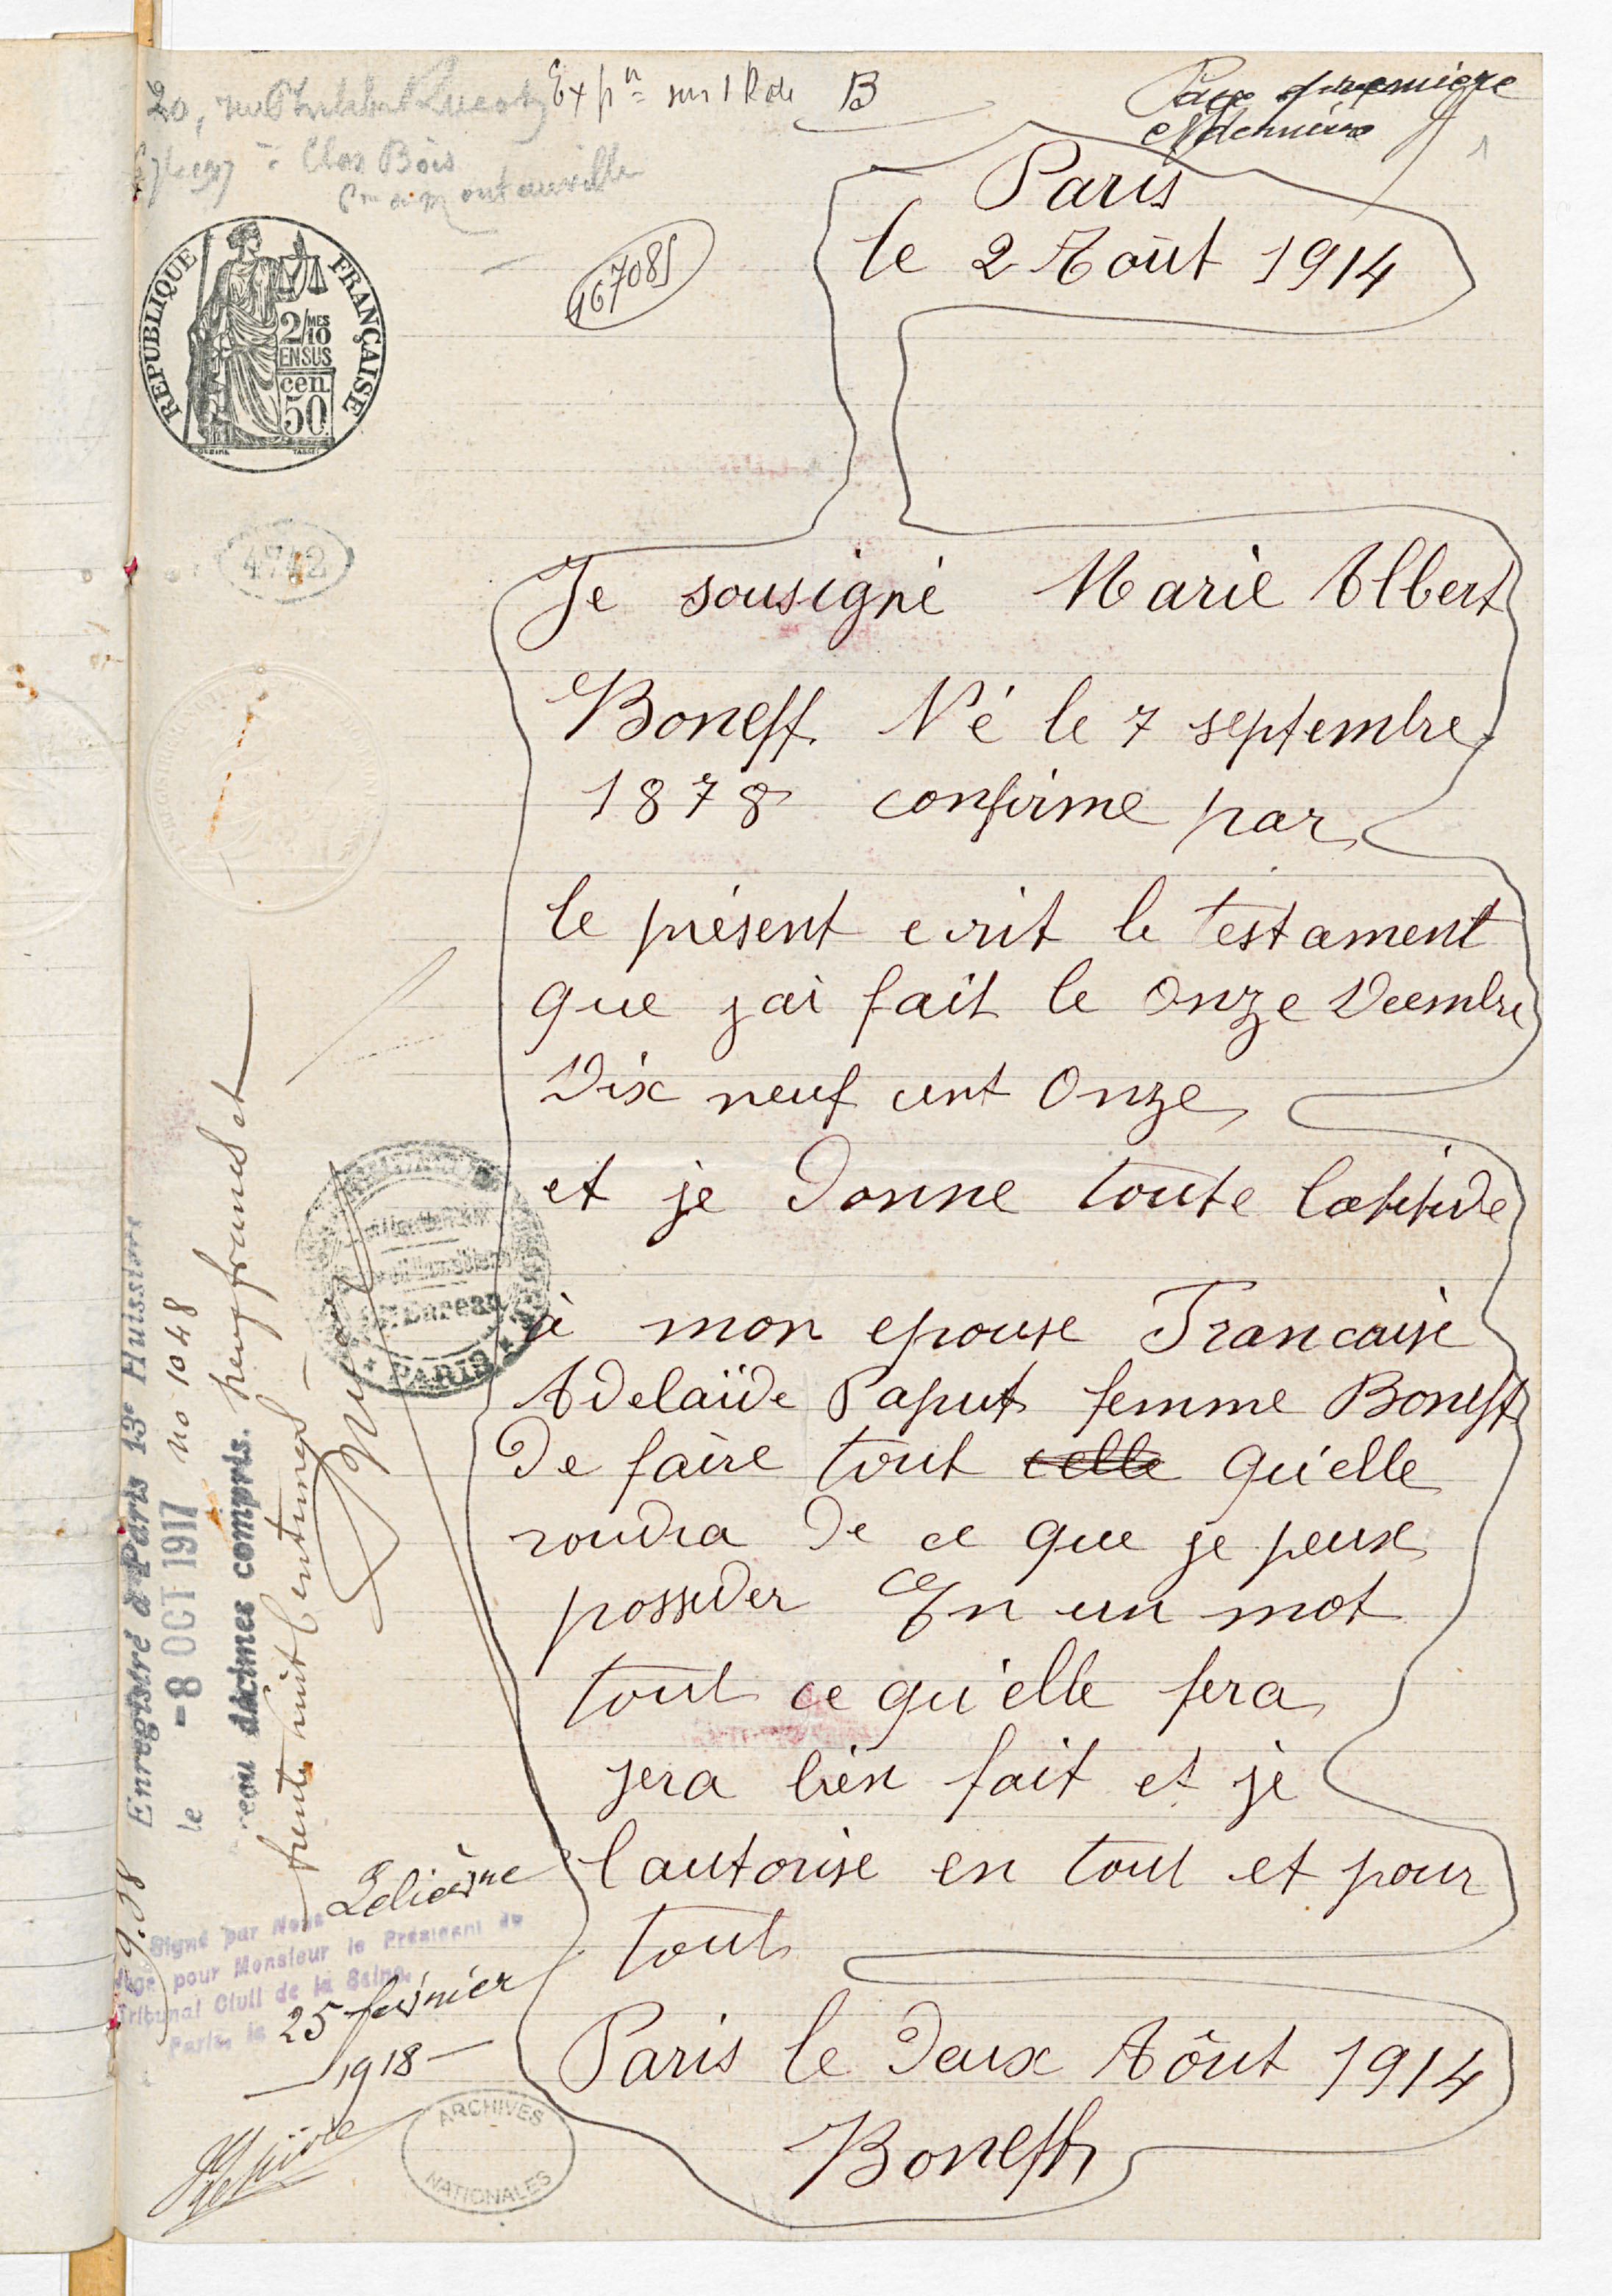 20, rue Philibert Lucot
Exp^n sur 1 Role B
Page première
et dernière
1
Clos Bois
Paris
le 2 Aoùt 1914
167085
REPUBLIQUE FRANÇAISE
2/10MES
EN SUS
cen.
50
4742
Je sousigné Marie Albert
Boneff Né le 7 septembre
1878 confirme par
le présent ecrit le testament
que jai fait le onze Decembre
Dix neuf cent Onze
et je Donne toute latitude
à mon epouse Francaise
Adelaïde Paput femme Boneff
De faire tout celle qu'elle
voudra De ce que je peux
posseder En un mot
tout ce qu'elle fera
sera bien fait et je
l'autorise en tout et pour
tout
Paris le Deux Aôut 1914
Boneff
Enregistré à Paris 13e Huissiers
le -8 OCT 1917 No 1048
décimes compris. neuf francs et
trente huit centimes
Bureau
PARIS
Signé par Nous
Juge pour Monsieur le Président du
Tribunal Civil de la Seine
Paris le 25 février
1918
ARCHIVES
NATIONALES